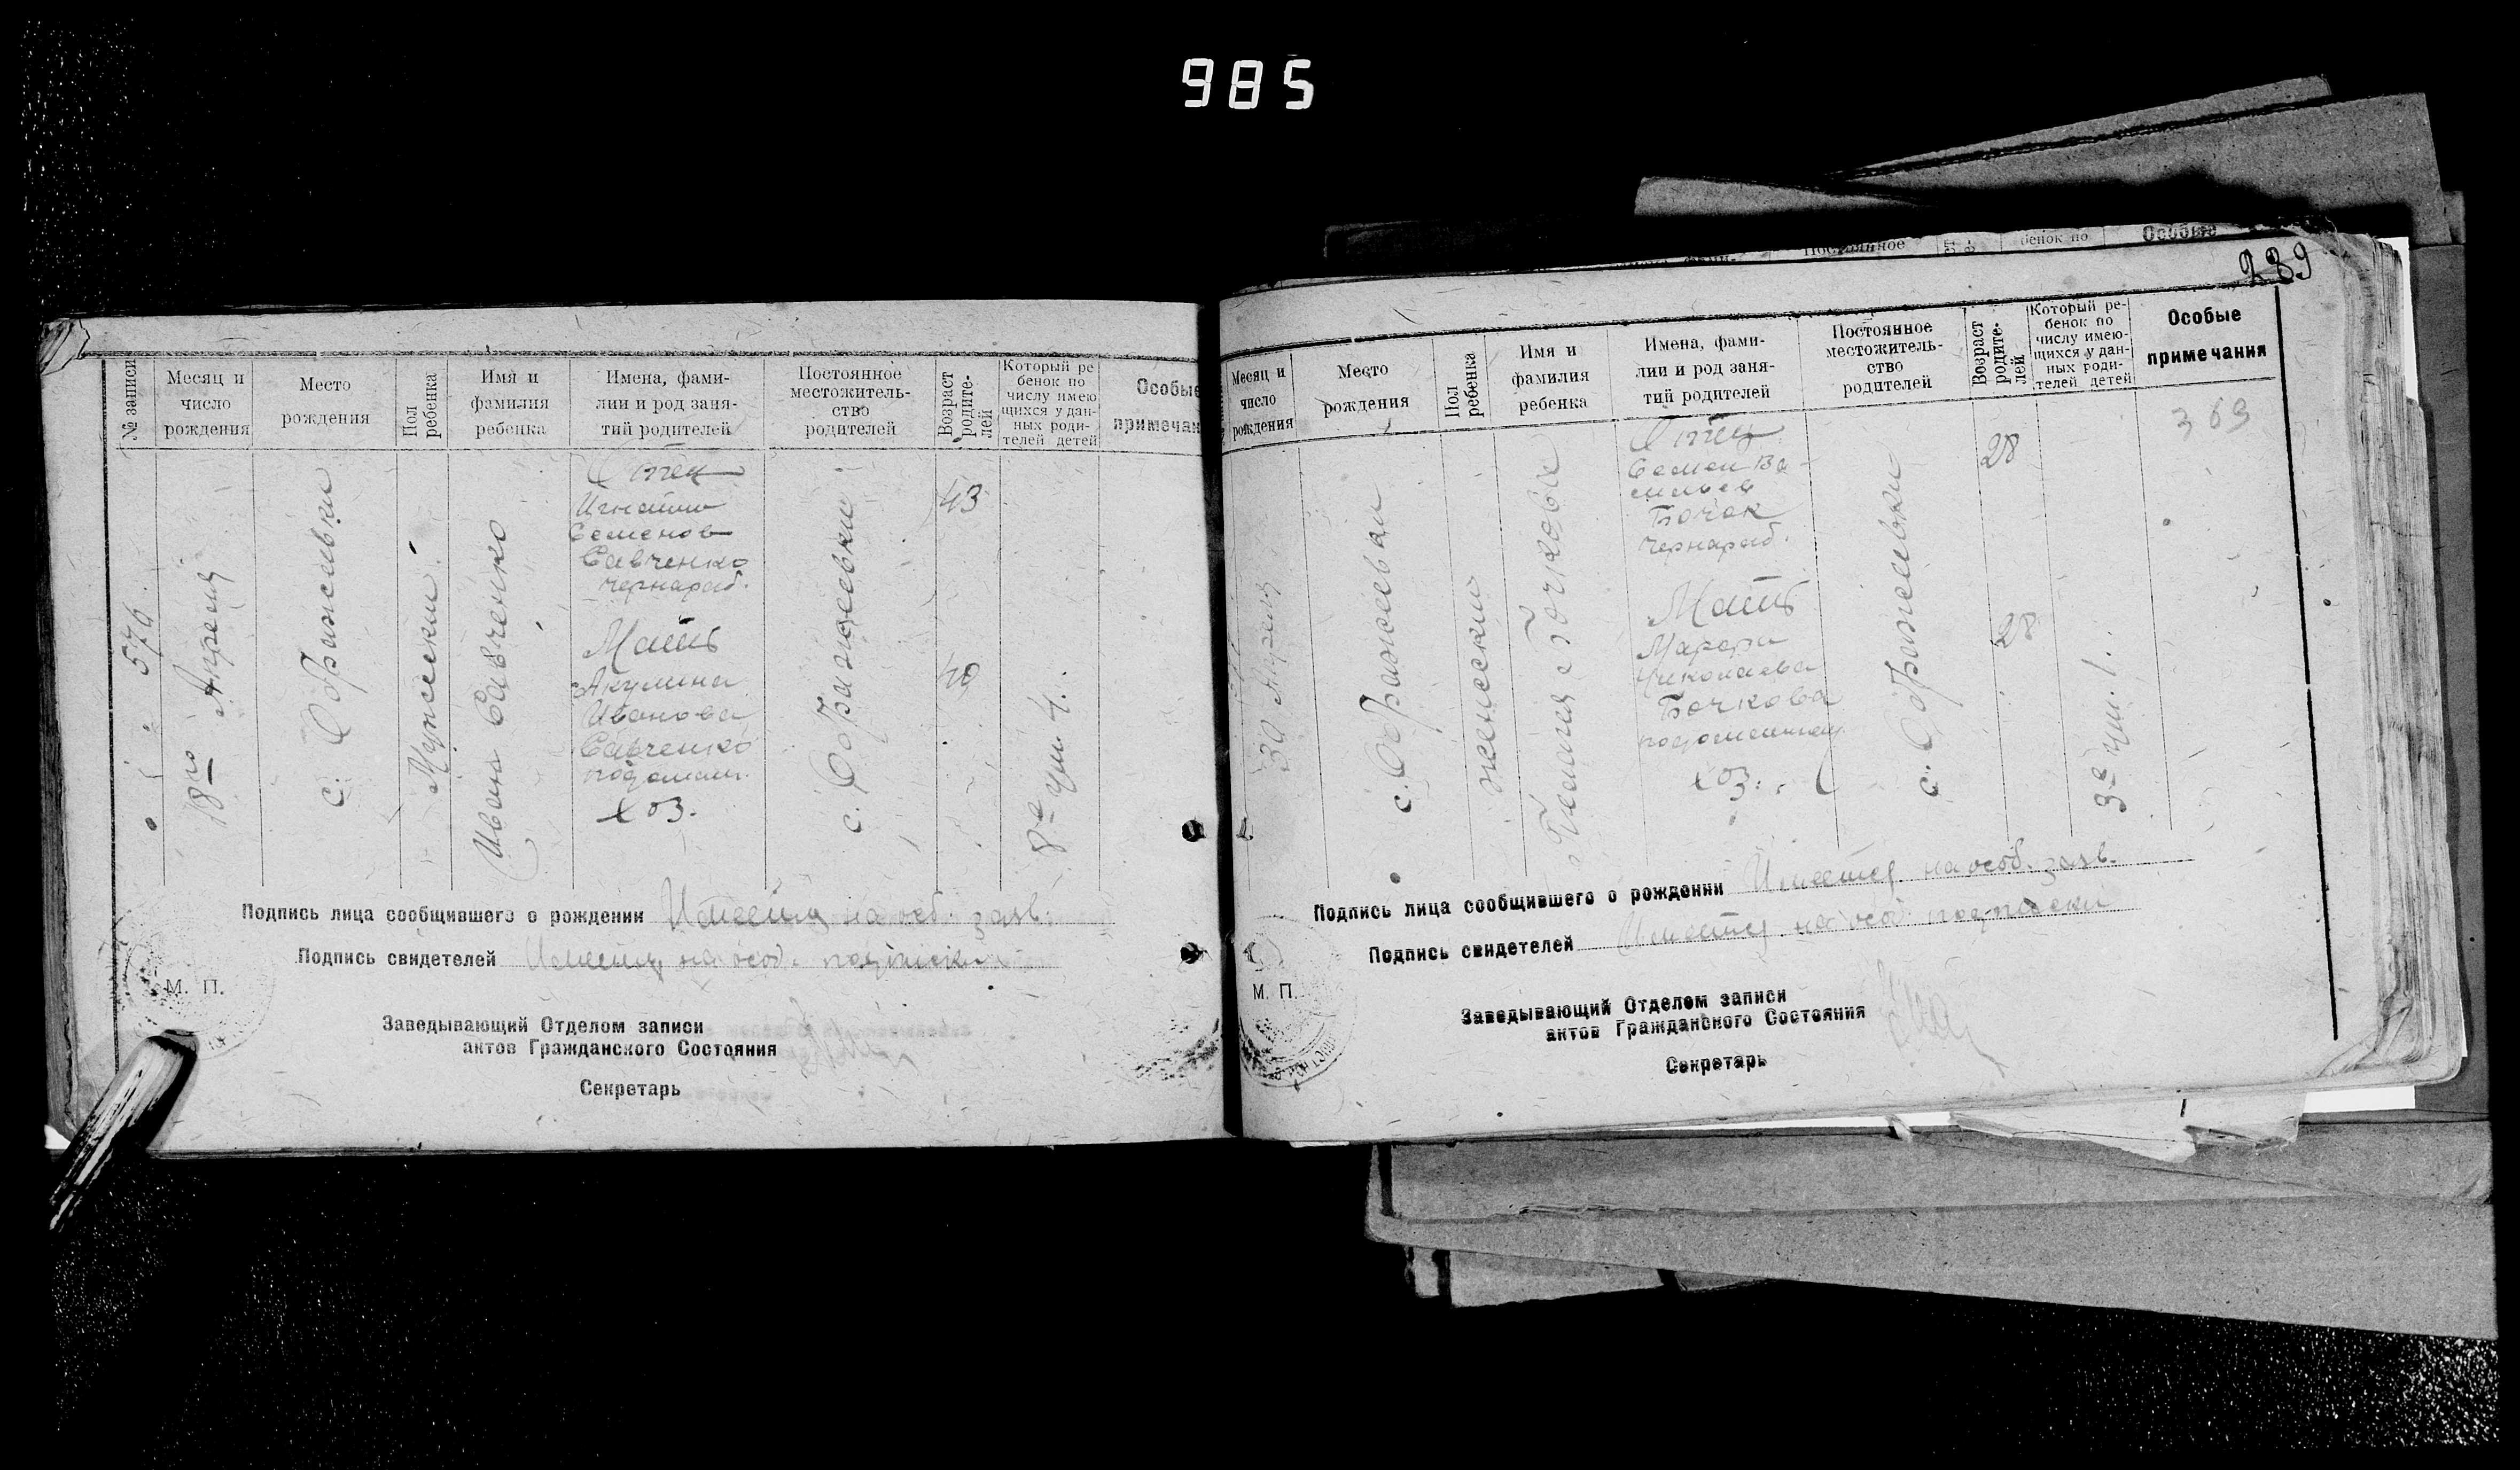 985
№ записи
Месяц и
число
рождения
Место
рождения
Пол
ребенка
Имя и
фамилия
ребенка
Имена, фами-
лии и род заня-
тий родителей
Постоянное
местожитель-
ство
родителей
Возраст
родите-
лей
Который ре
бенок по
числу имею
щихся у дан-
ных роди-
телей детей
Особые
примечан
576
18го Апреля
Мужески
Ивана Савченко
Отец
Игнатий
Семенов
Савченко
чернараб.
Мать
Акулина
Иванова
Савченко
хоз.
43
40
8е
Подпись лица сообщившего о рождении Имеется на особ. заяв.
Подпись свидетелей Имеется на особ. подписки
М. П.
Заведывающий Отделом записи
актов Гражданского Состояния
Секретарь
Постоянное
бенок по
Особые
239
Месяц и
число
рождения
Место
рождения
Пол
ребенка
Имя и
фамилия
ребенка
Имена, фами-
лии и род заня-
тий родителей
Постоянное
местожитель-
ство
родителей
Возраст
родите-
лей
Который ре-
бенок по
числу имею-
щихся у дан-
ных роди-
телей детей
Особые
примечания
369
30 Апреля
женски
Бочковых
Отец
Семен Ва-
сильев
Бочок
чернараб.
Мать
Николаева
Бочкова
хоз.
28
28
3е
Подпись лица сообщившего о рождении Имеется на особ. заяв.
Подпись свидетелей Имеется на особ подписки
М. П.
Заведывающий Отделом записи
актов Гражданского Состояния
Секретарь